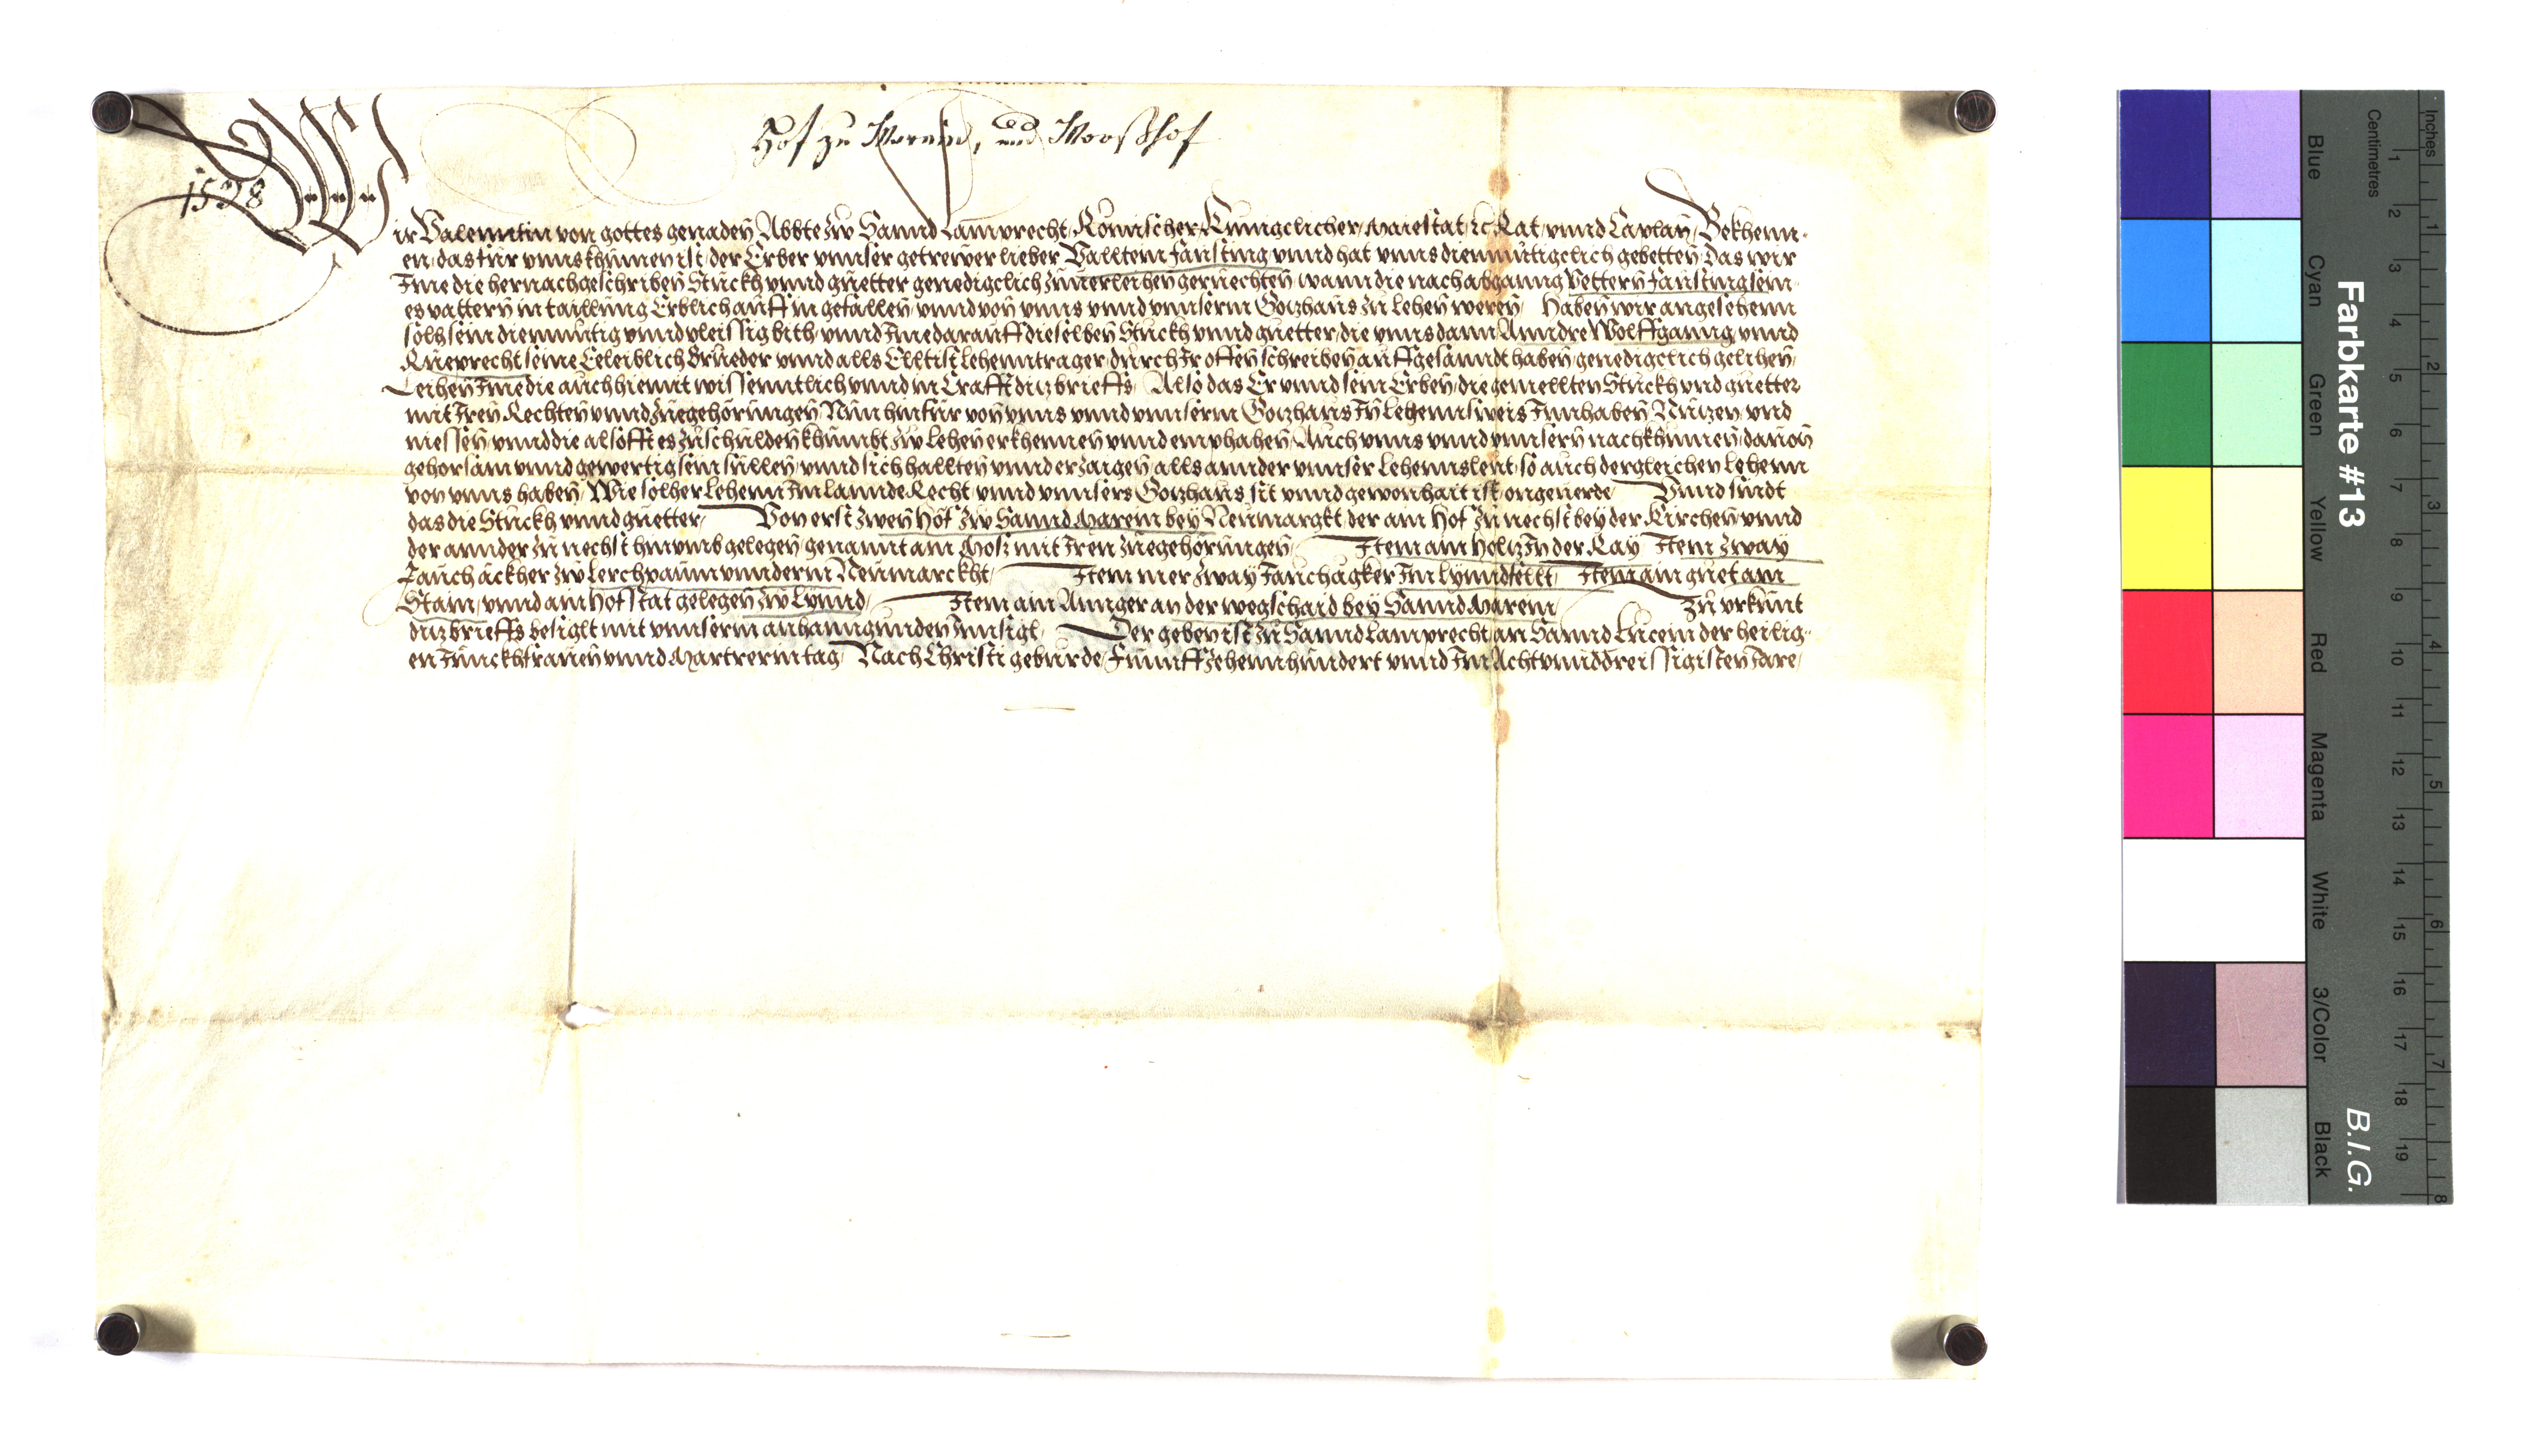 Hof zu Marein, und Mooßhof
1538
Wir Valenntin von gottes genaden Abbte zw Sannd Lamprecht, Römischer Kunigclicher Maiestat ꝛc Rat, vnnd Caplan, Bekhenn-
en, das für vnns khumen ist, der Erber vnnser getrewer lieber Valltein Fansting, vnnd hat vnns diemüetigclich gebetten, Das wir
Ime die hernachgeschriben Stuckh vnnd guetter genedigclich zuuerleihen geruechten, wann die nach abganng Pettern Fansting sein-
es vattern in taillung Erblich auff in gefallen, vnnd von vnns vnnd vnnserm Gotzhaus zu lehen weren, Haben wir angesehenn
solh sein diemüetig vnnd vleissig bith, vnnd Ime darauff dieselben Stuckh vnnd guetter, die vnns dann Anndre Wolffganng vnnd
Rueprecht seine Eeleiblich Brueder vnnd alls Elltist lehenntrager, durch Ir offen schreiben auffgesanndt haben, genedigclich gelihen,
Leihen Ime die auch hiemit wissenntlich vnnd in Crafft ditz brieffs, Also das Er vnnd sein Erben, die gemellten Stuckh vnd guetter
mit Iren Rechten vnnd zuegehörungen Nun hinfür von vnns vnnd vnnserm Gotzhaus In lehennsweis Innhaben, Nutzen, vnd
niessen, vnnd die als offt es zuschulden khumbt zw lehen erkhennen vnnd emphahen, Auch vnns vnnd vnnsern nachkhumen, dauon
gehorsam vnnd gewertig sein sullen, vnnd sich hallten vnnd erzaigen, alls annder vnnser lehennsleut, so auch dergleichen lehenn
von vnns haben, Wie solher lehenn Im lannde Recht, vnnd vnnsers Gotzhaus sit vnnd gewonhait ist, ongeuerde, Vnnd sindt
das die Stuckh vnnd guetter, Von erst zwen Höf zw Sannd Marein bey Neumargkt, der ain Hof zu nechst bey der Kirchen, vnnd
der annder zu nechst hinumb gelegen, genannt am Mosz mit Iren zuegehörungen, Item ain Holtz In der Kay, Item zway
Jauch äckher zw Lerchpaum vnnderm Neumarckht, Item mer zway Jauch agker Im Lynndtellt, Item ain guet am
Stain, vnnd ain Hofstat gelegen zw Lynnd, Item ain Annger an der wegschaid bey Sannd Marein, Zu vrkunt
ditz brieffs besiglt mit vnnserm anhanngunden Innsigl, Der geben ist zu Sannd Lamprecht, an Sannd Lucein der heilig-
en Junckhfrauen vnnd Martrerin tag, Nach Christi geburde, Funffzehennhundert vnnd Im Achtvnnddreissigisten Jare,
Farbkarte #13
B.I.G.
Inches
Centimetres
1
2
3
4
5
6
7
8
9
10
11
12
13
14
15
16
17
18
19
1
2
3
4
5
6
7
8
Blue
Cyan
Green
Yellow
Red
Magenta
White
3/Color
Black